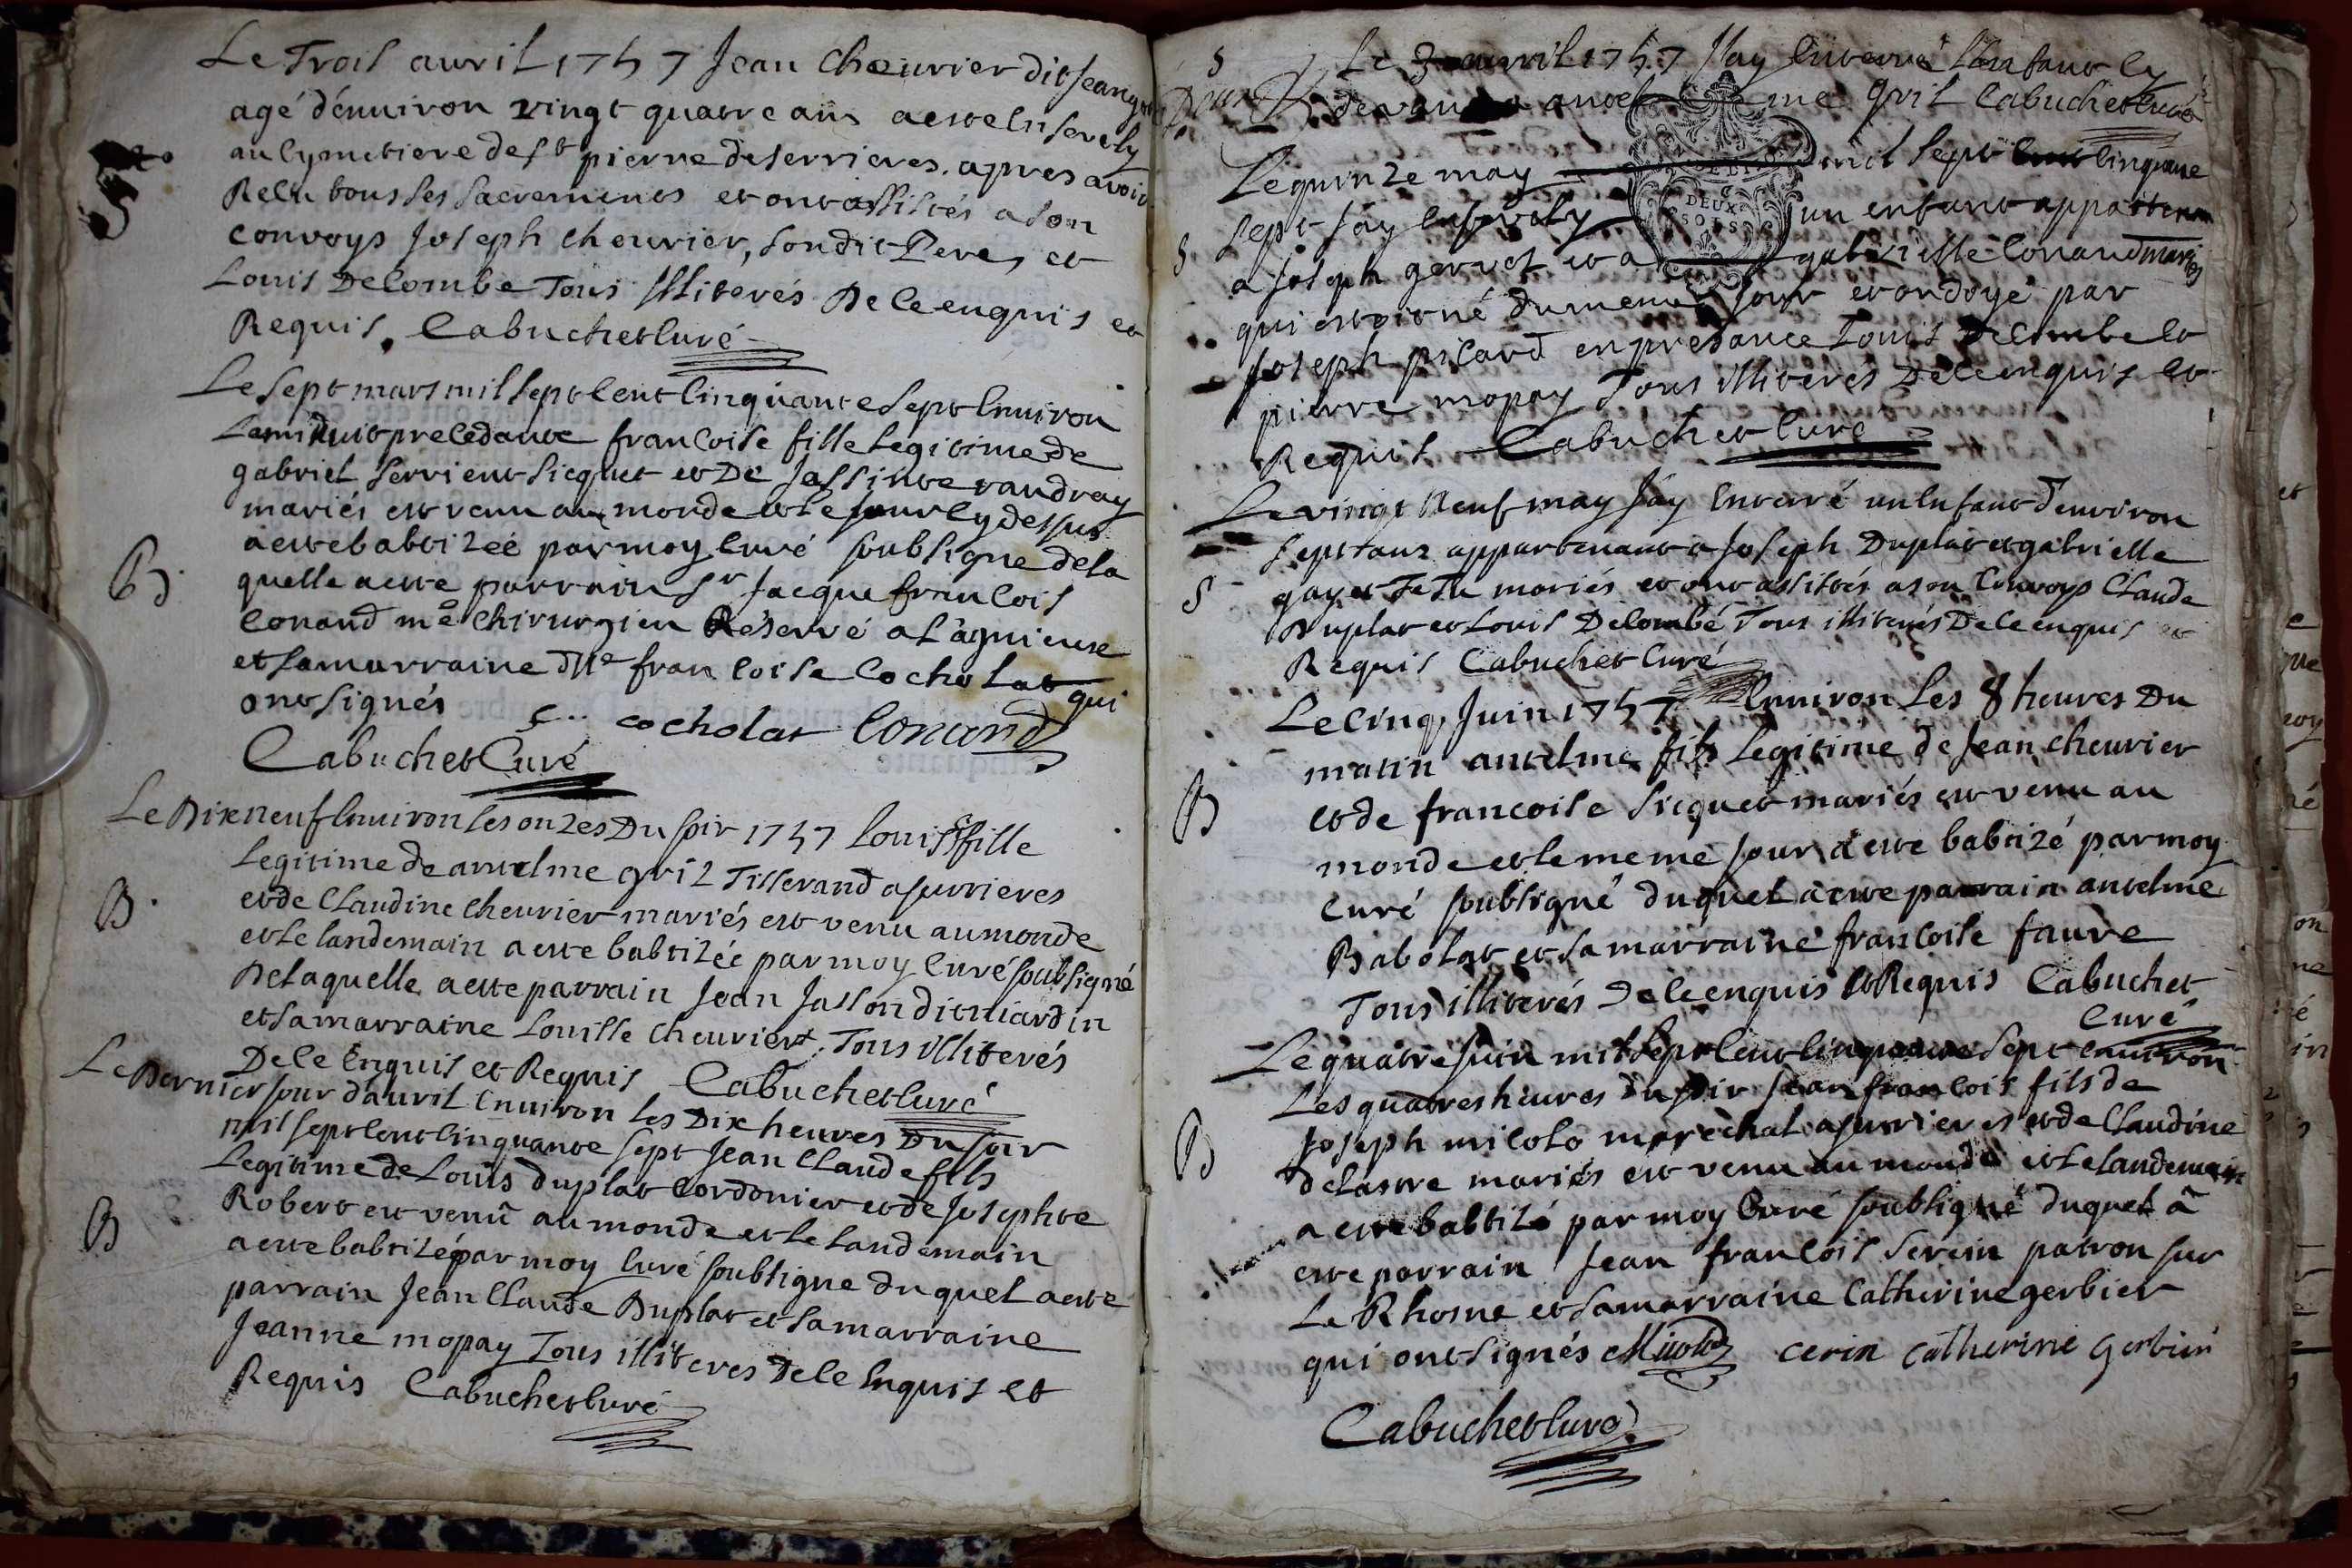 Le Trois auvril 1757 Jean Cheuvrier dit Jeangot
agé d'énuiron vingt quatre ans a este Ensevely
au Cymetiere de St pierre de serrieres. apres avoir
Recu tous ses Sacrements et ont assistés a son
convoys Joseph Cheuvrier, son dit Pere, et
Louis Delombe Tous illiterés De ce enquis et
Requis. Cabuchet Curé
Le Sept mars mil Sept Cent Cinquante Sept Enuiron
Le minduit precedante francoise fille Legitime de
gabriel Serrient Sicquet et De Jassinte vaudray
mariés est venu au monde et le jour Cy dessus
a este babtizéé par moy Curé soubsigne de la
B. quelle a este parrain Sr Jacque francois
Conand me Chirurgien Réservé a Lagnieuse
et Sa marraine Dlle francoise Cocholat qui
ont Signés f.. cocholat Conand
Cabuchet Curé
Le Dix neuf Enuiron les onzes Du soir 1757 Louisse fille
Legitime de antelme gril Tisserand a serrieres
B. et de Claudine Cheuvrier mariés est venu au monde
et Le landemain a este babtizéé par moy Curé soubsigné
De laquelle a este parrain Jean Jasson dit niardin
et sa marraine Louisse Cheuvrier, Tous illiterés
De ce Enquis et Requis Cabuchet Curé
Le Dernier jour d'auvril Enuiron les Dix heures Du soir
mil sept Cent Cinquante sept Jean Claude fils
Legitime de Louis duplat Cordonier et de Josephte
B Robert est venu au monde et Le landemain
a este babtizé par moy Curé soubsigne duquel a este
parrain Jean Claude Duplat et sa marraine
Jeanne mopay Tous illiteres De ce Enquis et
Requis Cabuchet Curé
S Le 3 auvril 1757 J'ay Enterré L'enfant Cy
devant antelme gril Cabuchet Curé
DEUX SOLS
Le quinze may mil Sept Cent Cinquante
Sept J'ay Ensevely un enfant appartenant
S a Joseph gervet et a gabrielle Conand mariés
qui est né du meme jour et ondoyé par
Joseph picard en presance Louis Delombe et
pierre mopay Tous illiteres De ce enquis et
Requis Cabuchet Curé
Le vingt Neuf may J'ay Enterré un Enfant d'environ
Sept ans appartenant a Joseph Duplat et gabrielle
S gayet mariés et ont assistés a son Convoys Claude
Duplat et Louis Delombé Tous illiterés De ce enquis et
Requis Cabuchet Curé
Le Cinq Juin 1757 Enuiron Les 8 heures Du
matin antelme fils Legitime de Jean Cheurier
B et de francoise Sicquet mariés est venu au
monde et le meme jour a este babtizé par moy
Curé soubsigné duquel a este parrain antelme
Babolat et sa marraine francoise faure
Tous illiterés De ce enquis et Requis Cabuchet
Curé
Le quatre Juin mil Sept Cent Cinquante Sept enuiron
Les quatres heures du soir Jean francois fils de
Joseph micolo marechal a serrieres et de Claudine
B delastre mariés est venu au monde et le landemain
a este babtizé par moy Curé soubsigné duquel a
este parrain Jean francois Serein patron sur
Le Rhosne et sa marraine Catherine gerbier
qui ont signés Micoloz cerin catherine Gerbier
Cabuchet Curé